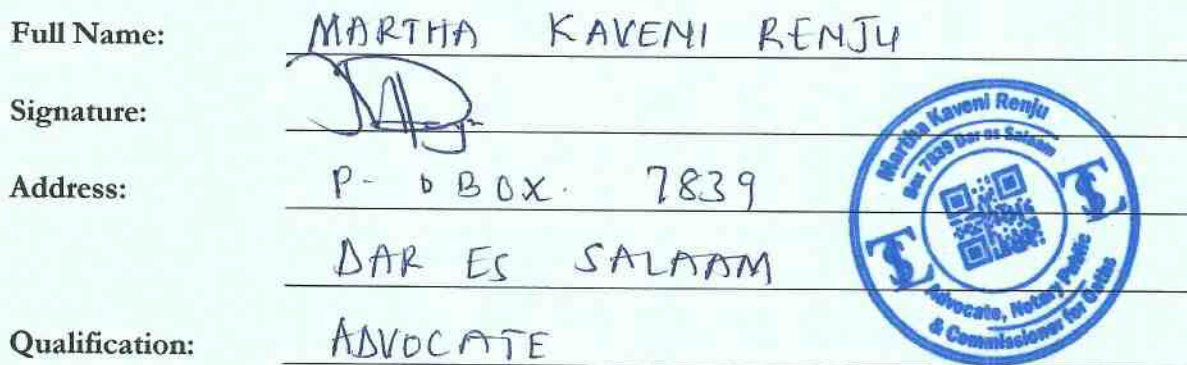 Full Name: MARTHA KAVENI RENJU
Signature:
Address: P- O BOX. 7839
DAR ES SALAAM
Qualification: ADVOCATE
Martha Kaveni Renju
Box 7839 Dar es Salaam
Advocate, Notary Public
& Commissioner for Oaths